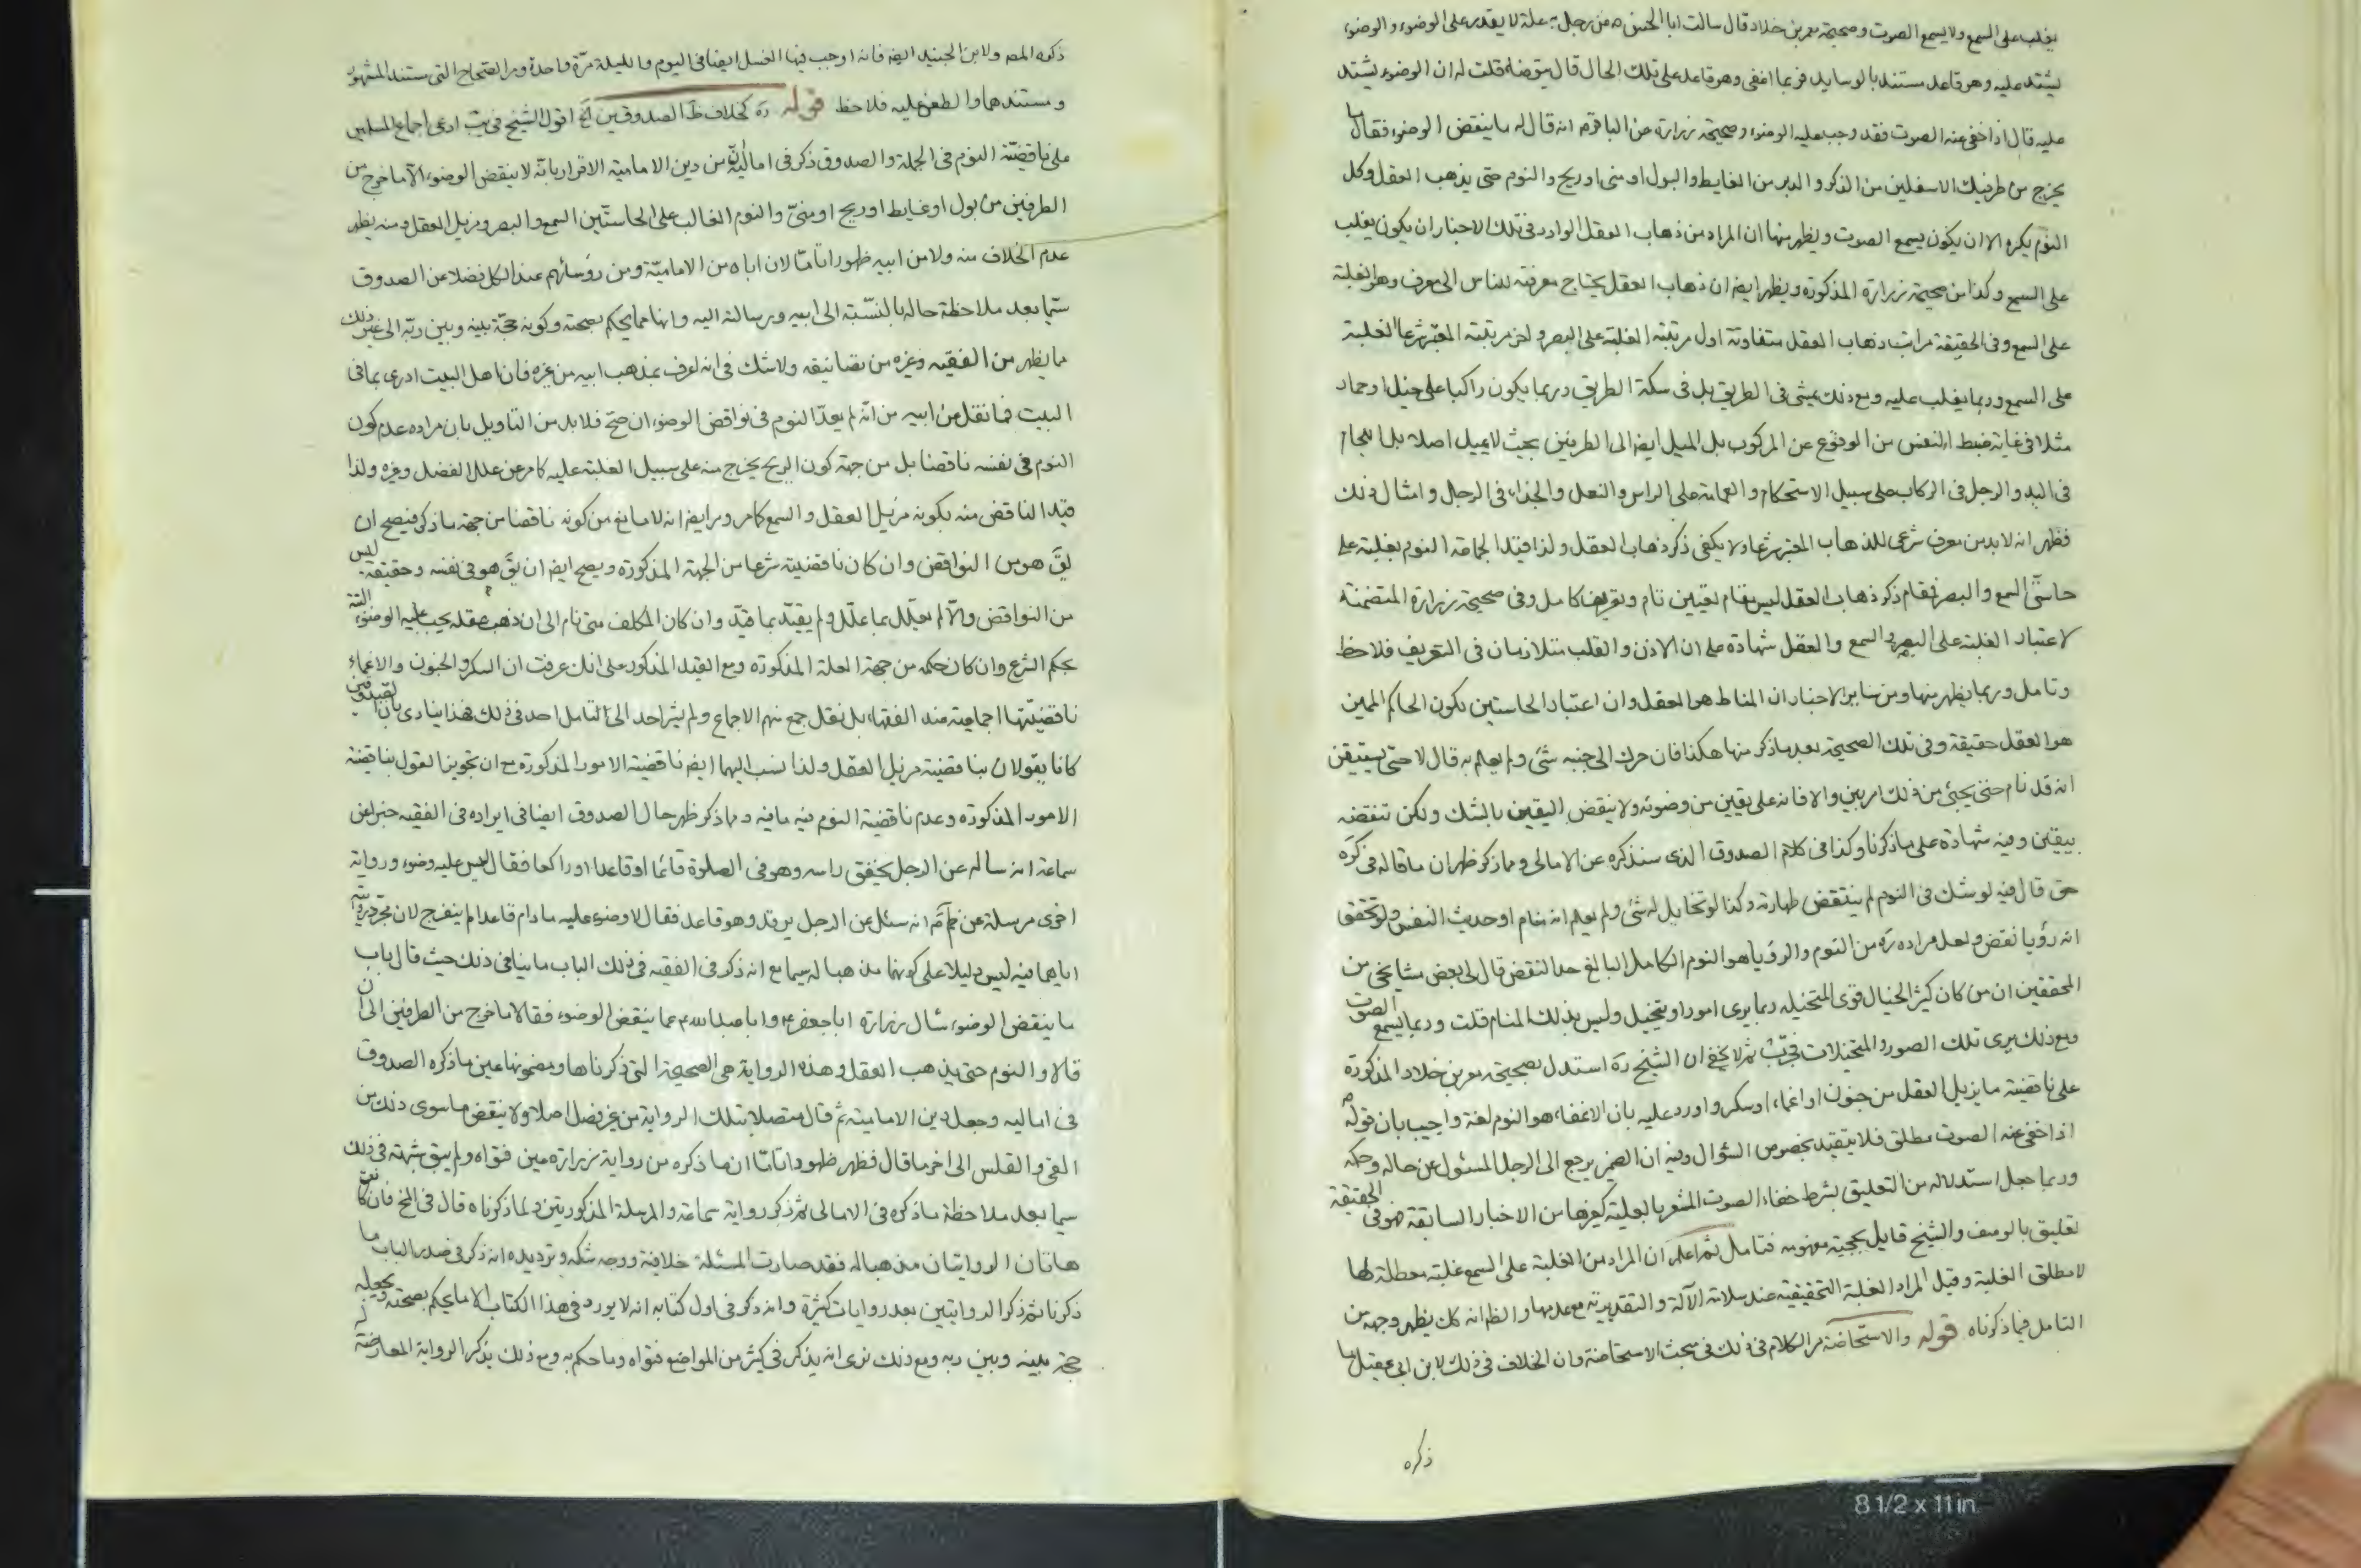 يغلب على السمع ولا يسمع الصوت وصحيحة معمر بن خلاد قال سالت ابا الحسن ع عن رجل به علة لا يقدر على الوضوء والوضوء
يشتد عليه وهو قاعد مستند بالوسايد فربما اغفى وهو قاعد على تلك الحال قال يتوضا قلت له ان الوضوء يشتد
عليه قال اذا خفى عنه الصوت فقد وجب عليه الوضوء وصحيحة زرارة عن الباقر ع انه قال له ما ينقض الوضوء فقال ما
يخرج من طرفيك الاسفلين من الذكر والدبر من الغايط والبول او منى او ريح والنوم حتى يذهب العقل وكل
النوم يكره الا ان يكون يسمع الصوت ويظهر منها ان المراد من ذهاب العقل الوارد فى تلك الاخبار ان يكون يغلب
على السمع وكذا من صحيحة زرارة المذكورة ويظهر ايضا ان ذهاب العقل يحتاج معرفته للناس الى معرف وهو الغلبة
على السمع وفى الحقيقة مراتب ذهاب العقل متفاوتة اول مرتبته الغلبة على البصر واخر مرتبته المعتبر شرعا الغلبة
على السمع وربما يغلب عليه ومع ذلك يمشى فى الطريق بل فى سكة الطريق وربما يكون راكبا على خيل او حمار
مثلا فى غاية ضبط النفس من الوقوع عن المركوب بل الميل ايضا الى الطرفين بحيث لا يميل اصلا بل اللجام
فى اليد والرجل فى الركاب على سبيل الاستحكام والعمامة على الراس والنعل والحذاء فى الرجل وامثال ذلك
فظهر انه لا بد من معرف شرعى للذهاب المعتبر شرعا ولا يكفى ذكر ذهاب العقل ولذا قيد الجماعة النوم بغلبته على
حاستى السمع والبصر فمقام ذكر ذهاب العقل ليس مقام تعيين تام وتعريف كامل وفى صحيحة زرارة المتضمنة
لاعتبار الغلبة على البصر والسمع والعقل شهادة على ان الاذن والقلب متلازمان فى التعريف فلاحظ
وتامل وربما يظهر منها ومن ساير الاخبار ان المناط هو العقل وان اعتبار الحاستين لكون الحاكم المميز
هو العقل حقيقة وفى تلك الصحيحة بعد ما ذكر منها هكذا فان حرك الى جنبه شئ ولم يعلم به قال لا حتى يستيقن
انه قد نام حتى يجئ من ذلك امر بين والا فانه على يقين من وضوئه ولا ينقض اليقين بالشك ولكن تنقضه
بيقين وفيه شهادة على ما ذكرنا وكذا فى كلام الصدوق الذى سنذكره عن الامالى ومما ذكر ظهر ان ما قاله فى كره
حق قال فيه لو شك فى النوم لم ينتقض طهارته وكذا لو تخايل له شئ ولم يعلم انه منام او حديث النفس ولو تحقق
انه رؤيا نقض ولعل مراده ره من النوم والرؤيا هو النوم الكامل البالغ حد النقض قال لى بعض مشايخى من
المحققين ان من كان كثير الخيال قوى المتخيله ربما يرى امورا ويتخيل وليس بذلك المنام قلت وربما يسمع الصوت
ومع ذلك يرى تلك الصور والمتخيلات ثم لا يخفى ان الشيخ ره استدل بصحيحة معمر بن خلاد المذكورة
على ناقضية ما يزيل العقل من جنون او اغماء او سكر واورد عليه بان الاغفاء هو النوم لغة واجيب بان قوله ع
اذا خفى عنه الصوت مطلق فلا يتقيد بخصوص السؤال وفيه ان الضمير يرجع الى الرجل المسئول عن حاله وحكمه
وربما جعل استدلاله من التعليق بشرط خفاء الصوت المشعر بالعلية كغيرها من الاخبار السابقة فهو فى الحقيقة
تعليق بالوصف والشيخ قايل بحجية مفهومه فتامل ثم اعلم ان المراد من الغلبة على السمع غلبة معطلة لها
لا مطلق الغلبة وقيل المراد الغلبة التحقيقية عند سلامة الآلة والتقديرية مع عدمها والظ انه كك يظهر وجهه من
التامل فيما ذكرناه قوله والاستحاضة مر الكلام فى ذلك فى مبحث الاستحاضة وان الخلاف فى ذلك لابن ابى عقيل ما
ذكره
ذكره المص ولابن الجنيد ايضا فانه اوجب فيها الغسل ايضا فى اليوم والليلة مرة واحدة ومر الصحاح التى مستند المشهور
ومستندهما والطعن عليه فلاحظ قوله ره كخلاف ظ الصدوقين الخ اقول الشيخ فى يب ادعى اجماع المسلمين
على ناقضية النوم فى الجملة والصدوق ذكر فى اماليه ان من دين الامامية الاقرار بانه لا ينقض الوضوء الا ما خرج من
الطرفين من بول او غايط او ريح او منى والنوم الغالب على الحاستين السمع والبصر ومزيل العقل ومنه يظهر
عدم الخلاف منه ولا من ابيه ظهورا تاما لان اباه من الامامية ومن رؤسائهم عند الكل فضلا عن الصدوق
سيما بعد ملاحظة حاله بالنسبة الى ابيه ورسالته اليه وانها مما يحكم بصحته وكونه حجة بينه وبين ربه الى غير ذلك
ما يظهر من الفقيه وغيره من تصانيفه ولا شك فى انه اعرف بمذهب ابيه من غيره فان اهل البيت ادرى بما فى
البيت فما نقل من ابيه من انه لم يعد النوم فى نواقض الوضوء ان صح فلا بد من التاويل بان مراده عدم كون
النوم فى نفسه ناقضا بل من جهة كون الريح يخرج منه على سبيل الغلبة عليه كما مر عن علل الفضل وغيره ولذا
قيد الناقض منه بكونه مزيل العقل والسمع كما مر ومر ايضا انه لا مانع من كونه ناقضا من جهة ما ذكر فيصح ان
يق هو من النواقض وان كان ناقضيته شرعا من الجهة المذكورة ويصح ايضا ان يق هو فى نفسه وحقيقة ليس
من النواقض والا لم يعلل بما علل ولم يقيد بما قيد وان كان المكلف متى نام الى ان ذهب عقله يجب عليه الوضوء البتة
بحكم الشرع وان كان حكمه من جهة العلة المذكورة ومع القيد المذكور على انك عرفت ان السكر والجنون والاغماء
ناقضيتها اجماعية عند الفقهاء بل نقل جمع منهم الاجماع ولم يشر احد الى التامل احد فى ذلك فهذا ينادى بان
كانا يقولان بناقضية مزيل العقل ولذا نسب اليهما ايضا ناقضية الامور المذكورة مع ان تجويز القول بناقضية
الامور المذكورة وعدم ناقضية النوم فيه ما فيه ومما ذكر ظهر حال الصدوق ايضا فى ايراده فى الفقيه خبر عن
سماعة انه ساله عن الرجل يخفق راسه وهو فى الصلوة قائما او قاعدا او راكعا فقال ليس عليه وضوء ورواية
اخرى مرسلة عن انه سئل عن الرجل يرقد وهو قاعد فقال لا وضوء عليه ما دام قاعدا لم ينفرج لان مجرد
اياهما فيه ليس دليلا على كونهما مذهبا له سيما مع انه ذكر فى الفقيه فى ذلك الباب ما ينافى ذلك حيث قال باب
ما ينقض الوضوء سال زرارة ابا جعفر ع وابا عبد الله ع عما ينقض الوضوء فقالا ما خرج من الطرفين الى ان
قالا والنوم حتى يذهب العقل وهذه الرواية هى الصحيحة التى ذكرناها ومضمونها عين ما ذكره الصدوق
فى اماليه وجعل دين الامامية ثم قال متصلا بتلك الرواية من غير فصل اصلا ولا ينقض ما سوى ذلك من
القئ والقلس الى اخر ما قال فظهر ظهورا تاما ان ما ذكره من رواية زرارة عين فتواه ولم يبق شبهة فى ذلك
سيما بعد ملاحظة ما ذكره فى الامالى ثم ذكر رواية سماعة والمرسلة المذكورتين ولما ذكرناه قال فى المخ فان كانت
هاتان الروايتان مذهبا له فقد صارت المسئلة خلافية ووجه شكه وترديده انه ذكر فى صدر الباب ما
ذكرنا ثم ذكر الروايتين بعد روايات كثيرة وانه ذكر فى اول كتابه انه لا يورد فى هذا الكتاب الا ما يحكم بصحته ويجعله
حجة بينه وبين ربه ومع ذلك نرى انه يذكر فى كثير من المواضع فتواه وما حكم به ومع ذلك يذكر الرواية المعارضة له
8 1/2 x 11 in.